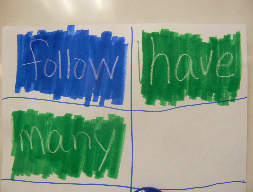 follow have
many